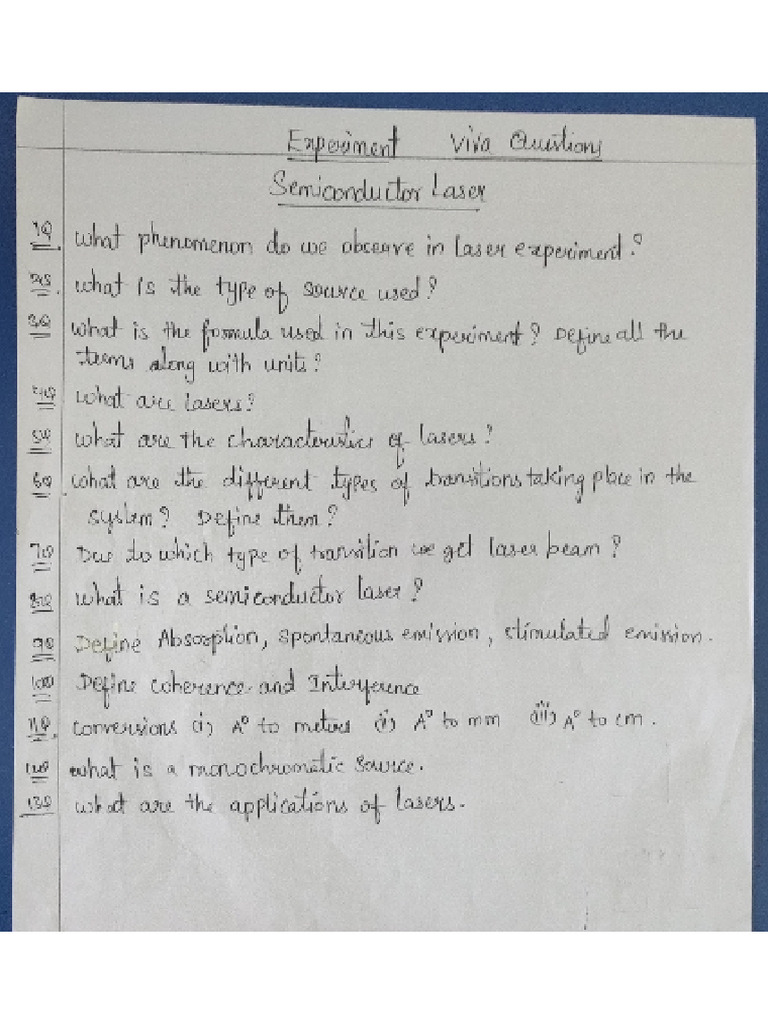 Experiment Viva Questions
Semiconductor Laser
1Q. What phenomenon do we observe in laser experiment?
2Q. what is the type of source used?
3Q what is the formula used in this experiment? Define all the
terms along with units?
4Q what are lasers?
5Q what are the characteristics of lasers?
6Q what are the different types of transitions taking place in the
system? Define them?
7Q Due to which type of transition we get laser beam?
8Q what is a semiconductor laser?
9Q Define Absorption, spontaneous emission, stimulated emission.
10Q Define coherence and Interference
11Q. conversions (i) A° to meters (ii) A° to mm (iii) A° to cm.
12Q what is a monochromatic source.
13Q what are the applications of lasers.